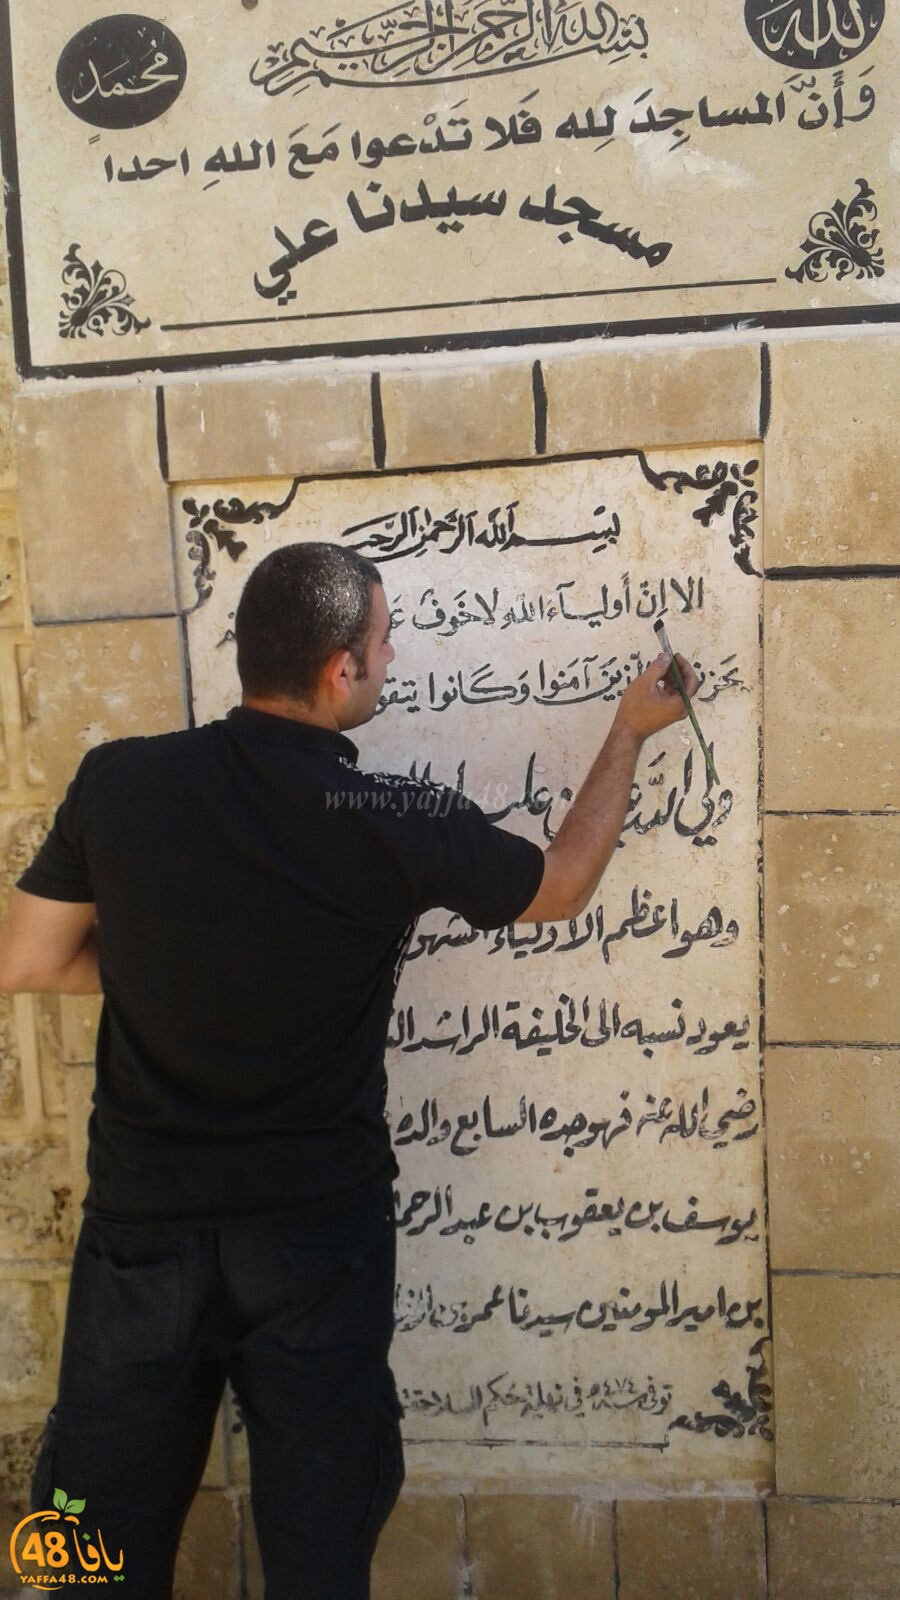 محمد
بسم الله الرحمن الرحيم
الله
وَأَنَّ المساجِدَ لِله فَلا تَدْعوا مَعَ اللهِ احداً
مسجد سيدنا علي
بسم الله الرحمن الرحيم
الا إن أولياء الله لا خوف
الذين آمنوا وكانوا يتقو
ولي الله علي
وهو اعظم الاولياء المشهو
يعود نسبه الى الخليفة الراشد
رضي الله عنه فهو جده السابع والده
يوسف بن يعقوب بن عبد الرحما
بن امير المومنين سيدنا عمر بن
توفي سنة ٤٧٤ه في نهاية حكم السلاجقة
www.yaffa48.com
يافا 48
YAFFA48.COM